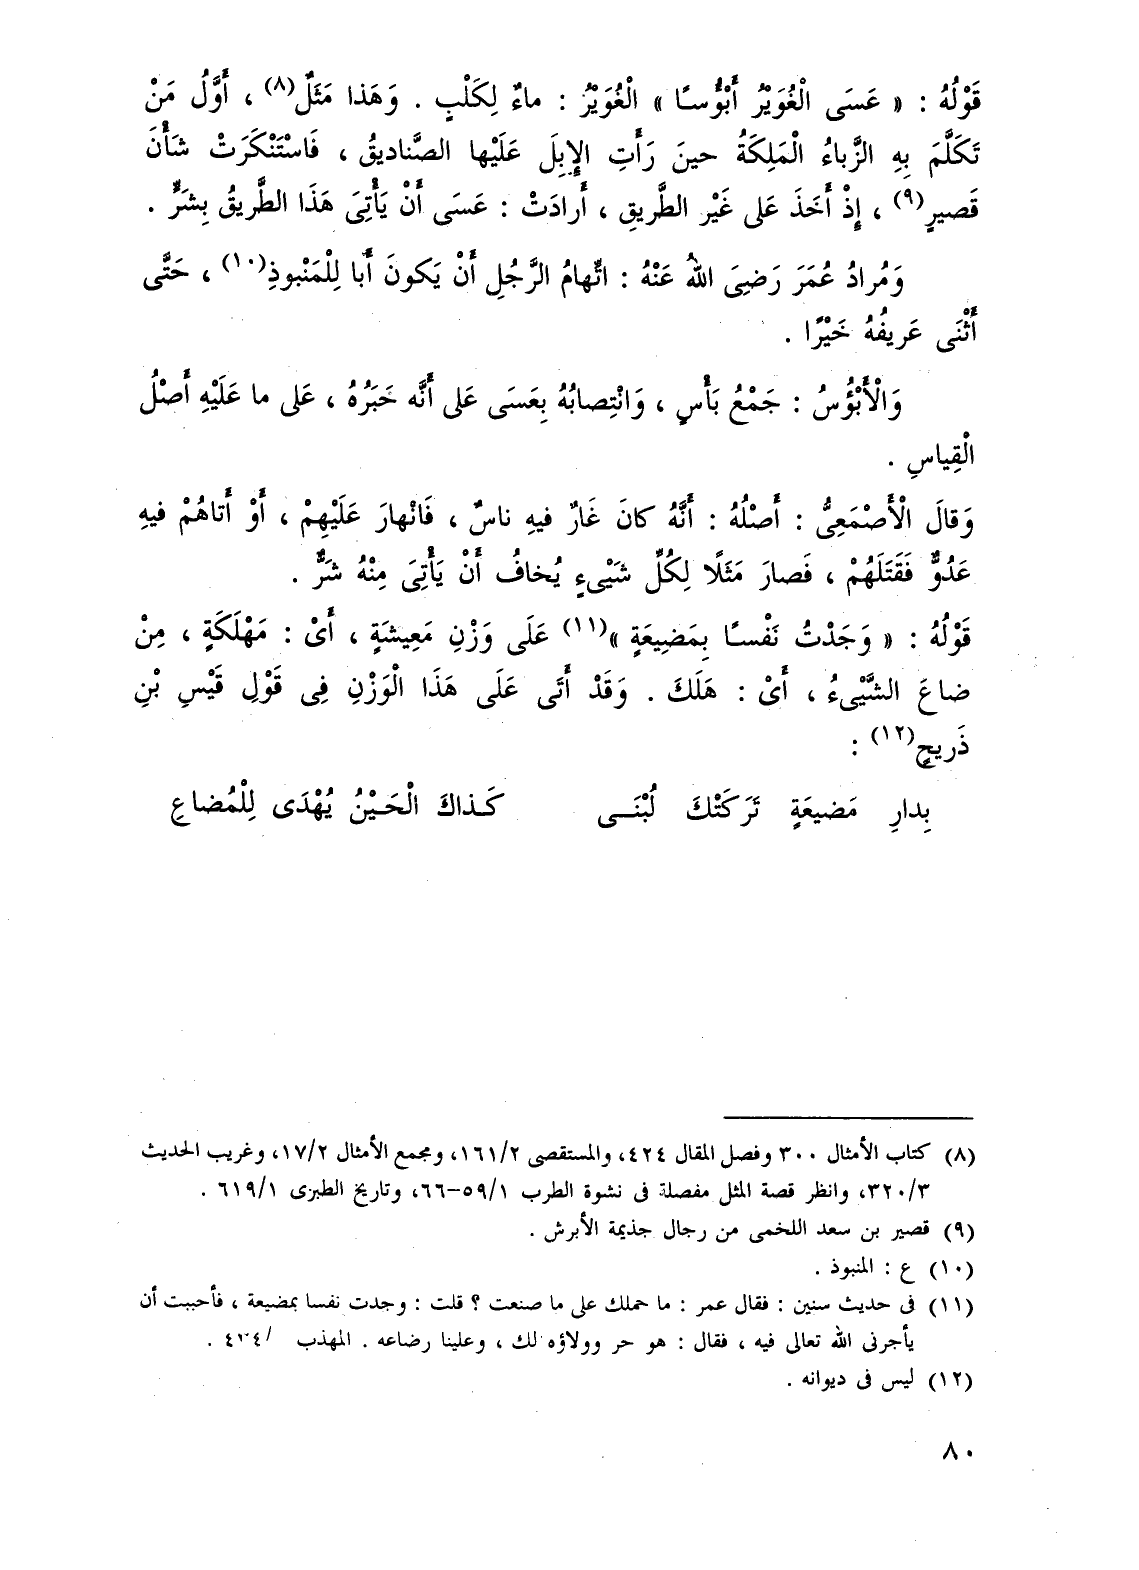 قَوْلُهُ : « عَسَى الْغُوَيْرُ أَبْؤُسًا » الْغُوَيْرُ : ماءٌ لِكَلْبٍ . وَهَذا مَثَلٌ(٨) ، أَوَّلُ مَنْ
تَكَلَّمَ بِهِ الزَّباءُ الْمَلِكَةُ حينَ رَأَتِ الإِبِلَ عَلَيْها الصَّناديقُ ، فَاسْتَنْكَرَتْ شَأْنَ
قَصيرٍ(٩) ، إِذْ أَخَذَ عَلى غَيْرِ الطَّريقِ ، أَرادَتْ : عَسَى أَنْ يَأْتِىَ هَذَا الطَّريقُ بِشَرٍّ .
وَمُرادُ عُمَرَ رَضِىَ اللهُ عَنْهُ : اتِّهامُ الرَّجُلِ أَنْ يَكونَ أَبا لِلْمَنْبوذِ(١٠) ، حَتَّى
أَثْنَى عَريفُهُ خَيْرًا .
وَالْأَبْؤُسُ : جَمْعُ بَأْسٍ ، وَانْتِصابُهُ بِعَسَى عَلى أَنَّه خَبَرُهُ ، عَلى ما عَلَيْهِ أَصْلُ
الْقِياسِ .
وَقالَ الْأَصْمَعِىُّ : أَصْلُهُ : أَنَّهُ كانَ غَارٌ فيهِ ناسٌ ، فَانْهارَ عَلَيْهِمْ ، أَوْ أَتاهُمْ فيهِ
عَدُوٌّ فَقَتَلَهُمْ ، فَصارَ مَثَلًا لِكُلِّ شَيْىءٍ يُخافُ أَنْ يَأْتِىَ مِنْهُ شَرٌّ .
قَوْلُهُ : « وَجَدْتُ نَفْسًا بِمَضِيعَةٍ »(١١) عَلَى وَزْنِ مَعِيشَةٍ ، أَىْ : مَهْلَكَةٍ ، مِنْ
ضاعَ الشَّيْىءُ ، أَىْ : هَلَكَ . وَقَدْ أَتَى عَلَى هَذَا الْوَزْنِ فِى قَوْلِ قَيْسِ بْنِ
ذَريحٍ(١٢) :
بِدارِ مَضيعَةٍ تَرَكَتْكَ لُبْنَـى كَـذاكَ الْحَـيْنُ يُهْدَى لِلْمُضاعِ
(٨) كتاب الأمثال ٣٠٠ وفصل المقال ٤٢٤، والمستقصى ١٦١/٢، ومجمع الأمثال ١٧/٢، وغريب الحديث
٣٢٠/٣، وانظر قصة المثل مفصلة فى نشوة الطرب ٥٩/١–٦٦، وتاريخ الطبرى ٦١٩/١ .
(٩) قصير بن سعد اللخمى من رجال جذيمة الأبرش .
(١٠) ع : المنبوذ .
(١١) فى حديث سنين : فقال عمر : ما حملك على ما صنعت ؟ قلت : وجدت نفسا بمضيعة ، فأحببت أن
يأجرنى الله تعالى فيه ، فقال : هو حر وولاؤه لك ، وعلينا رضاعه . المهذب
(١٢) ليس فى ديوانه .
٨٠